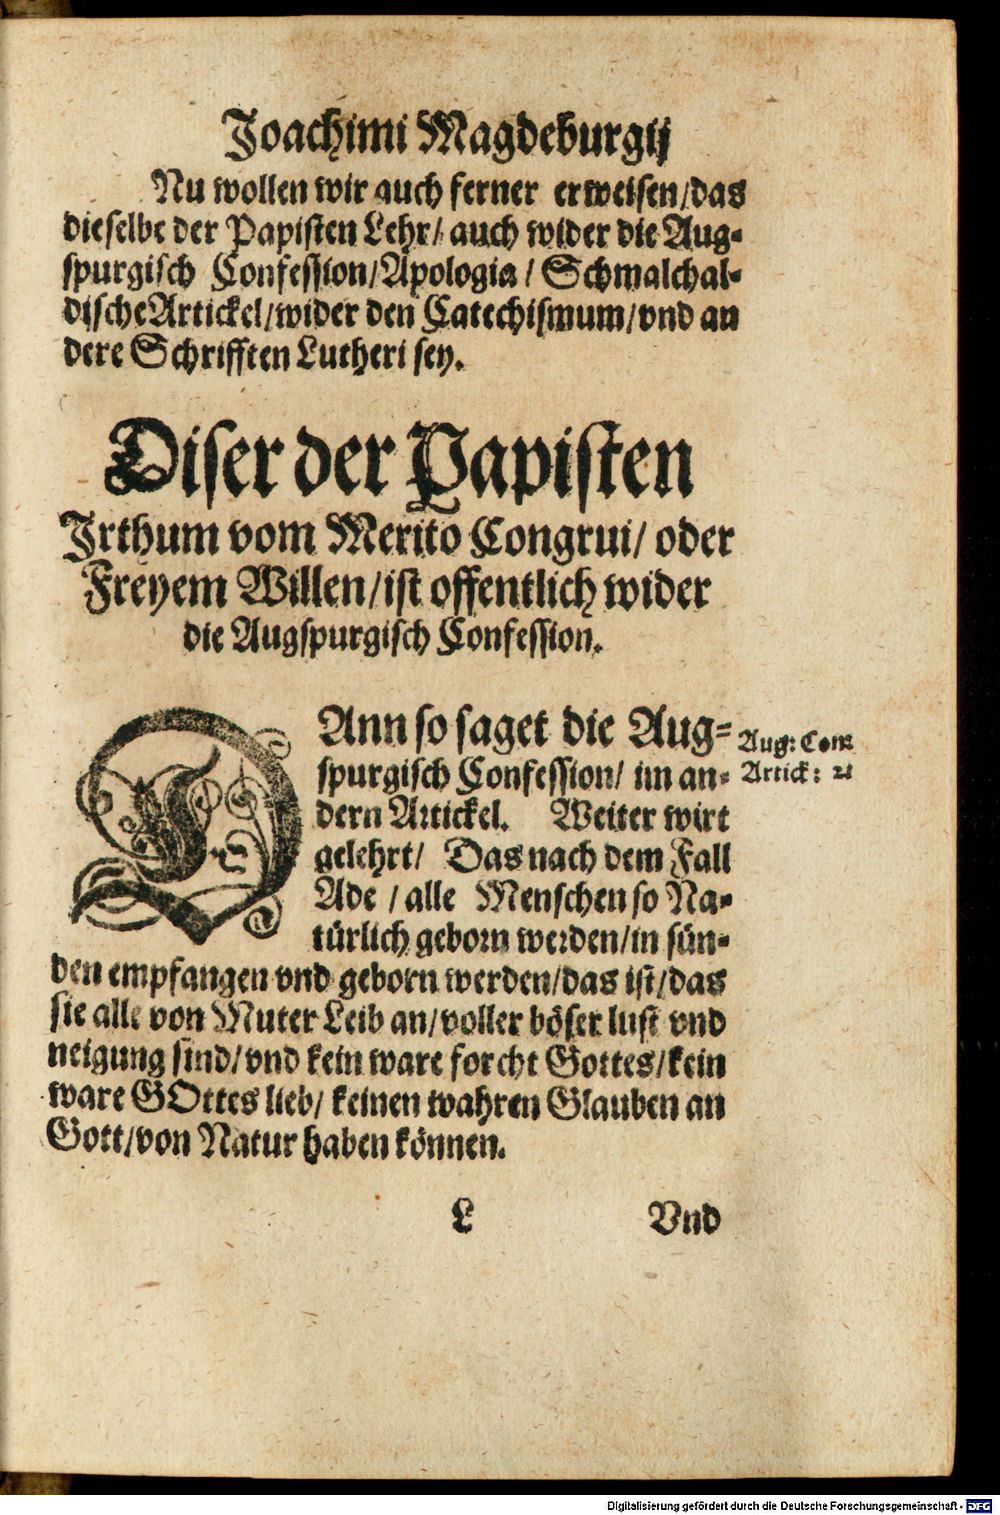 Joachimi Magdeburgij
Nu wollen wir auch ferner erweisen/das
dieselbe der Papisten Lehr/ auch wider die Aug-
spurgisch Confession/Apologia/ Schmalchal-
dische Artickel/wider den Catechismum/vnd an
dere Schrifften Lutheri sey.
Diser der Papisten
Jrthum vom Merito Congrui/ oder
Freyem Willen/ist offentlich wider
die Augspurgisch Confession.
DAnn so saget die Aug-
spurgisch Confession/ im an-
dern Artickel. Weiter wirt
gelehrt/ Das nach dem Fall
Ade / alle Menschen so Na-
türlich geborn werden/in sün-
den empfangen vnd geborn werden/das ist/das
sie alle von Muter Leib an/voller böser lust vnd
neigung sind/vnd kein ware forcht Gottes/kein
ware GOttes lieb/ keinen wahren Glauben an
Gott/von Natur haben können.
Aug: Con:
Artick: 2
L Vnd
Digitalisierung gefördert durch die Deutsche Forschungsgemeinschaft - DFG